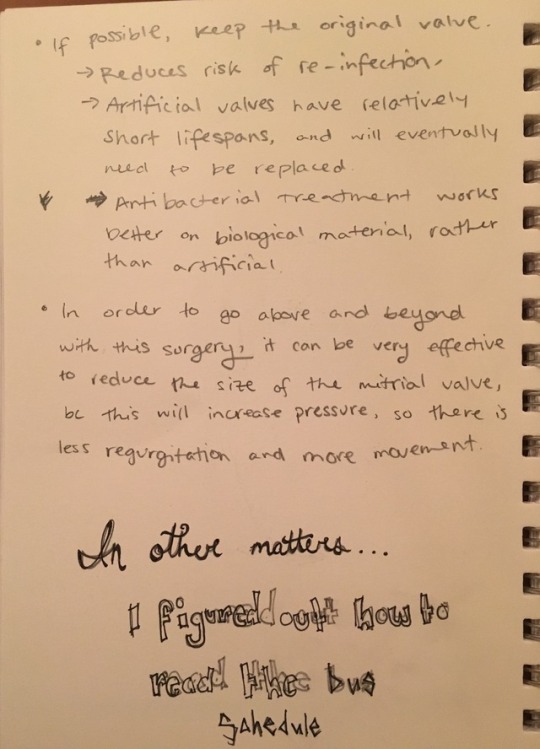 • If possible, keep the original valve.
→ Reduces risk of re-infection.
→ Artificial valves have relatively
short lifespans, and will eventually
need to be replaced.
→ Antibacterial treatment works
better on biological material, rather
than artificial.
• In order to go above and beyond
with this surgery, it can be very effective
to reduce the size of the mitrial valve,
bc this will increase pressure, so there is
less regurgitation and more movement.
In other matters...
I figured out how to
read the bus
schedule